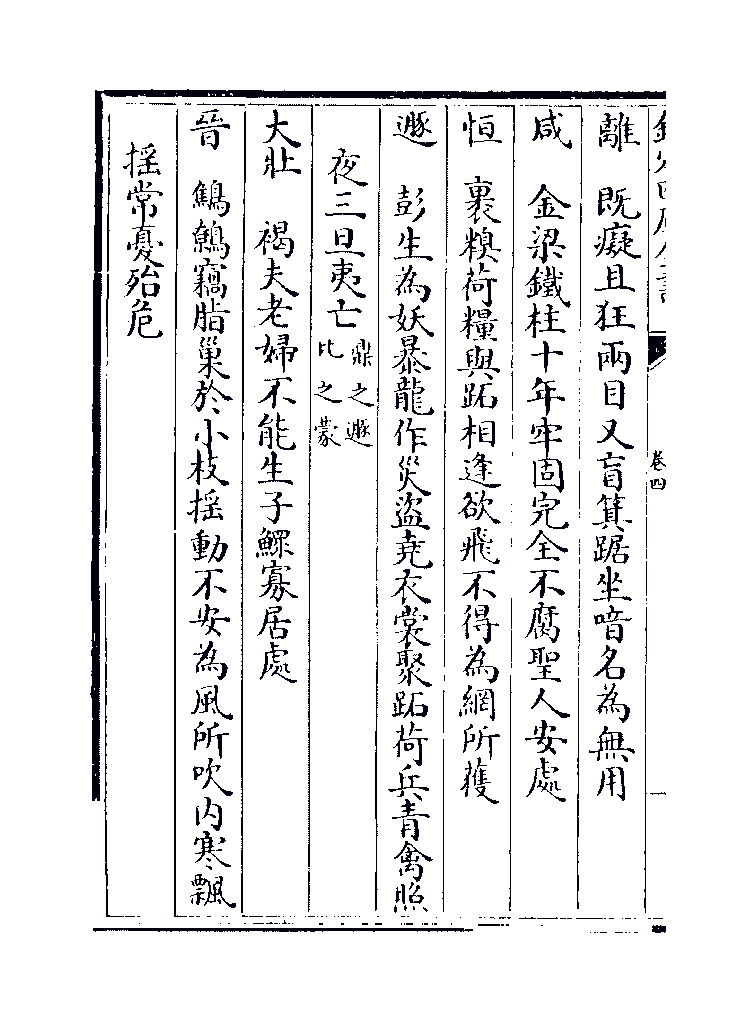 卷四
離　既癡且狂兩目又盲箕踞坐喑名為無用
咸　金梁鐵柱十年牢固完全不腐聖人安處
恒　裹糗荷糧與跖相逢欲飛不得為網所獲
遯　彭生為妖暴龍作災盜堯衣裳聚跖荷兵青禽照
夜三旦夷亡鼎之遯比之蒙
大壯　褐夫老婦不能生子鰥寡居處
晉　鷦鷯竊脂巢於小枝揺動不安為風所吹内寒飄
揺常憂殆危